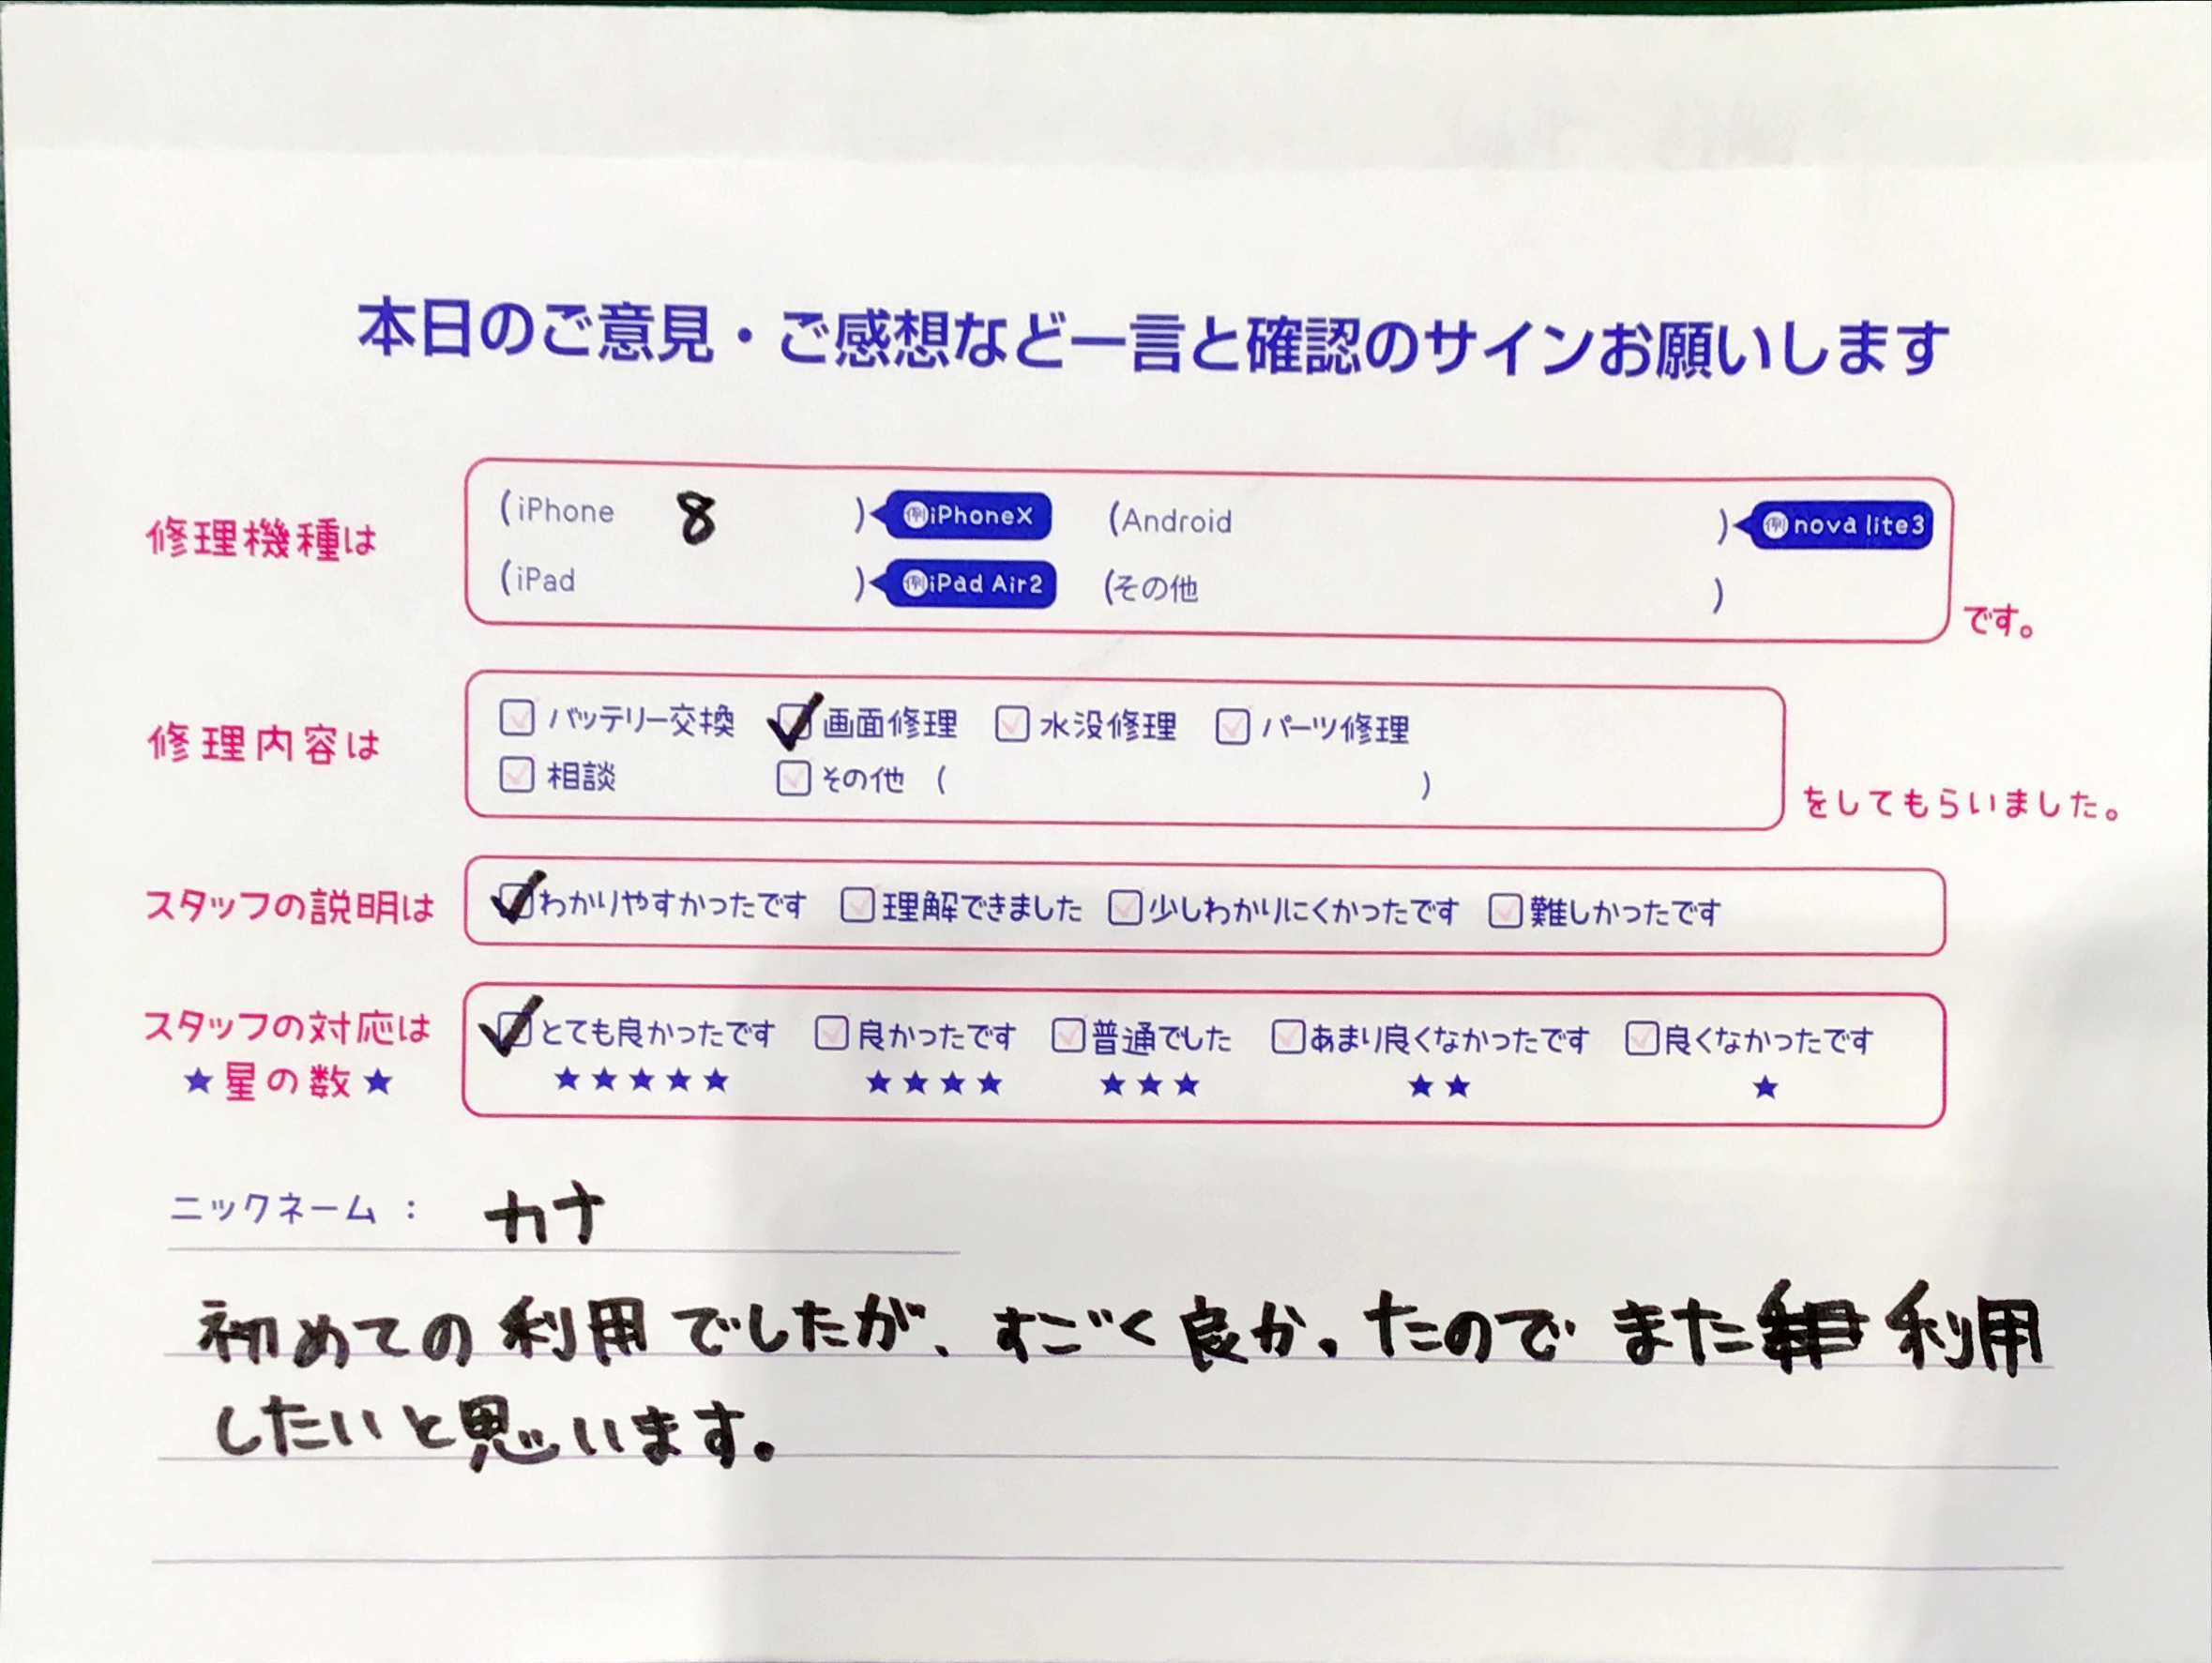 本日のご意見・ご感想など一言と確認のサインお願いします
修理機種は
(iPhone 8 ) 例iPhoneX (Android ) 例nova lite3
(iPad ) 例iPad Air2 (その他 )
です。
修理内容は
バッテリー交換 画面修理 水没修理 パーツ修理
相談 その他 ( )
をしてもらいました。
スタッフの説明は わかりやすかったです 理解できました 少しわかりにくかったです 難しかったです
スタッフの対応は とても良かったです 良かったです 普通でした あまり良くなかったです 良くなかったです
★星の数★ ★★★★★ ★★★★ ★★★ ★★ ★
ニックネーム： カナ
初めての利用でしたが、すごく良かったのでまた利用
したいと思います。